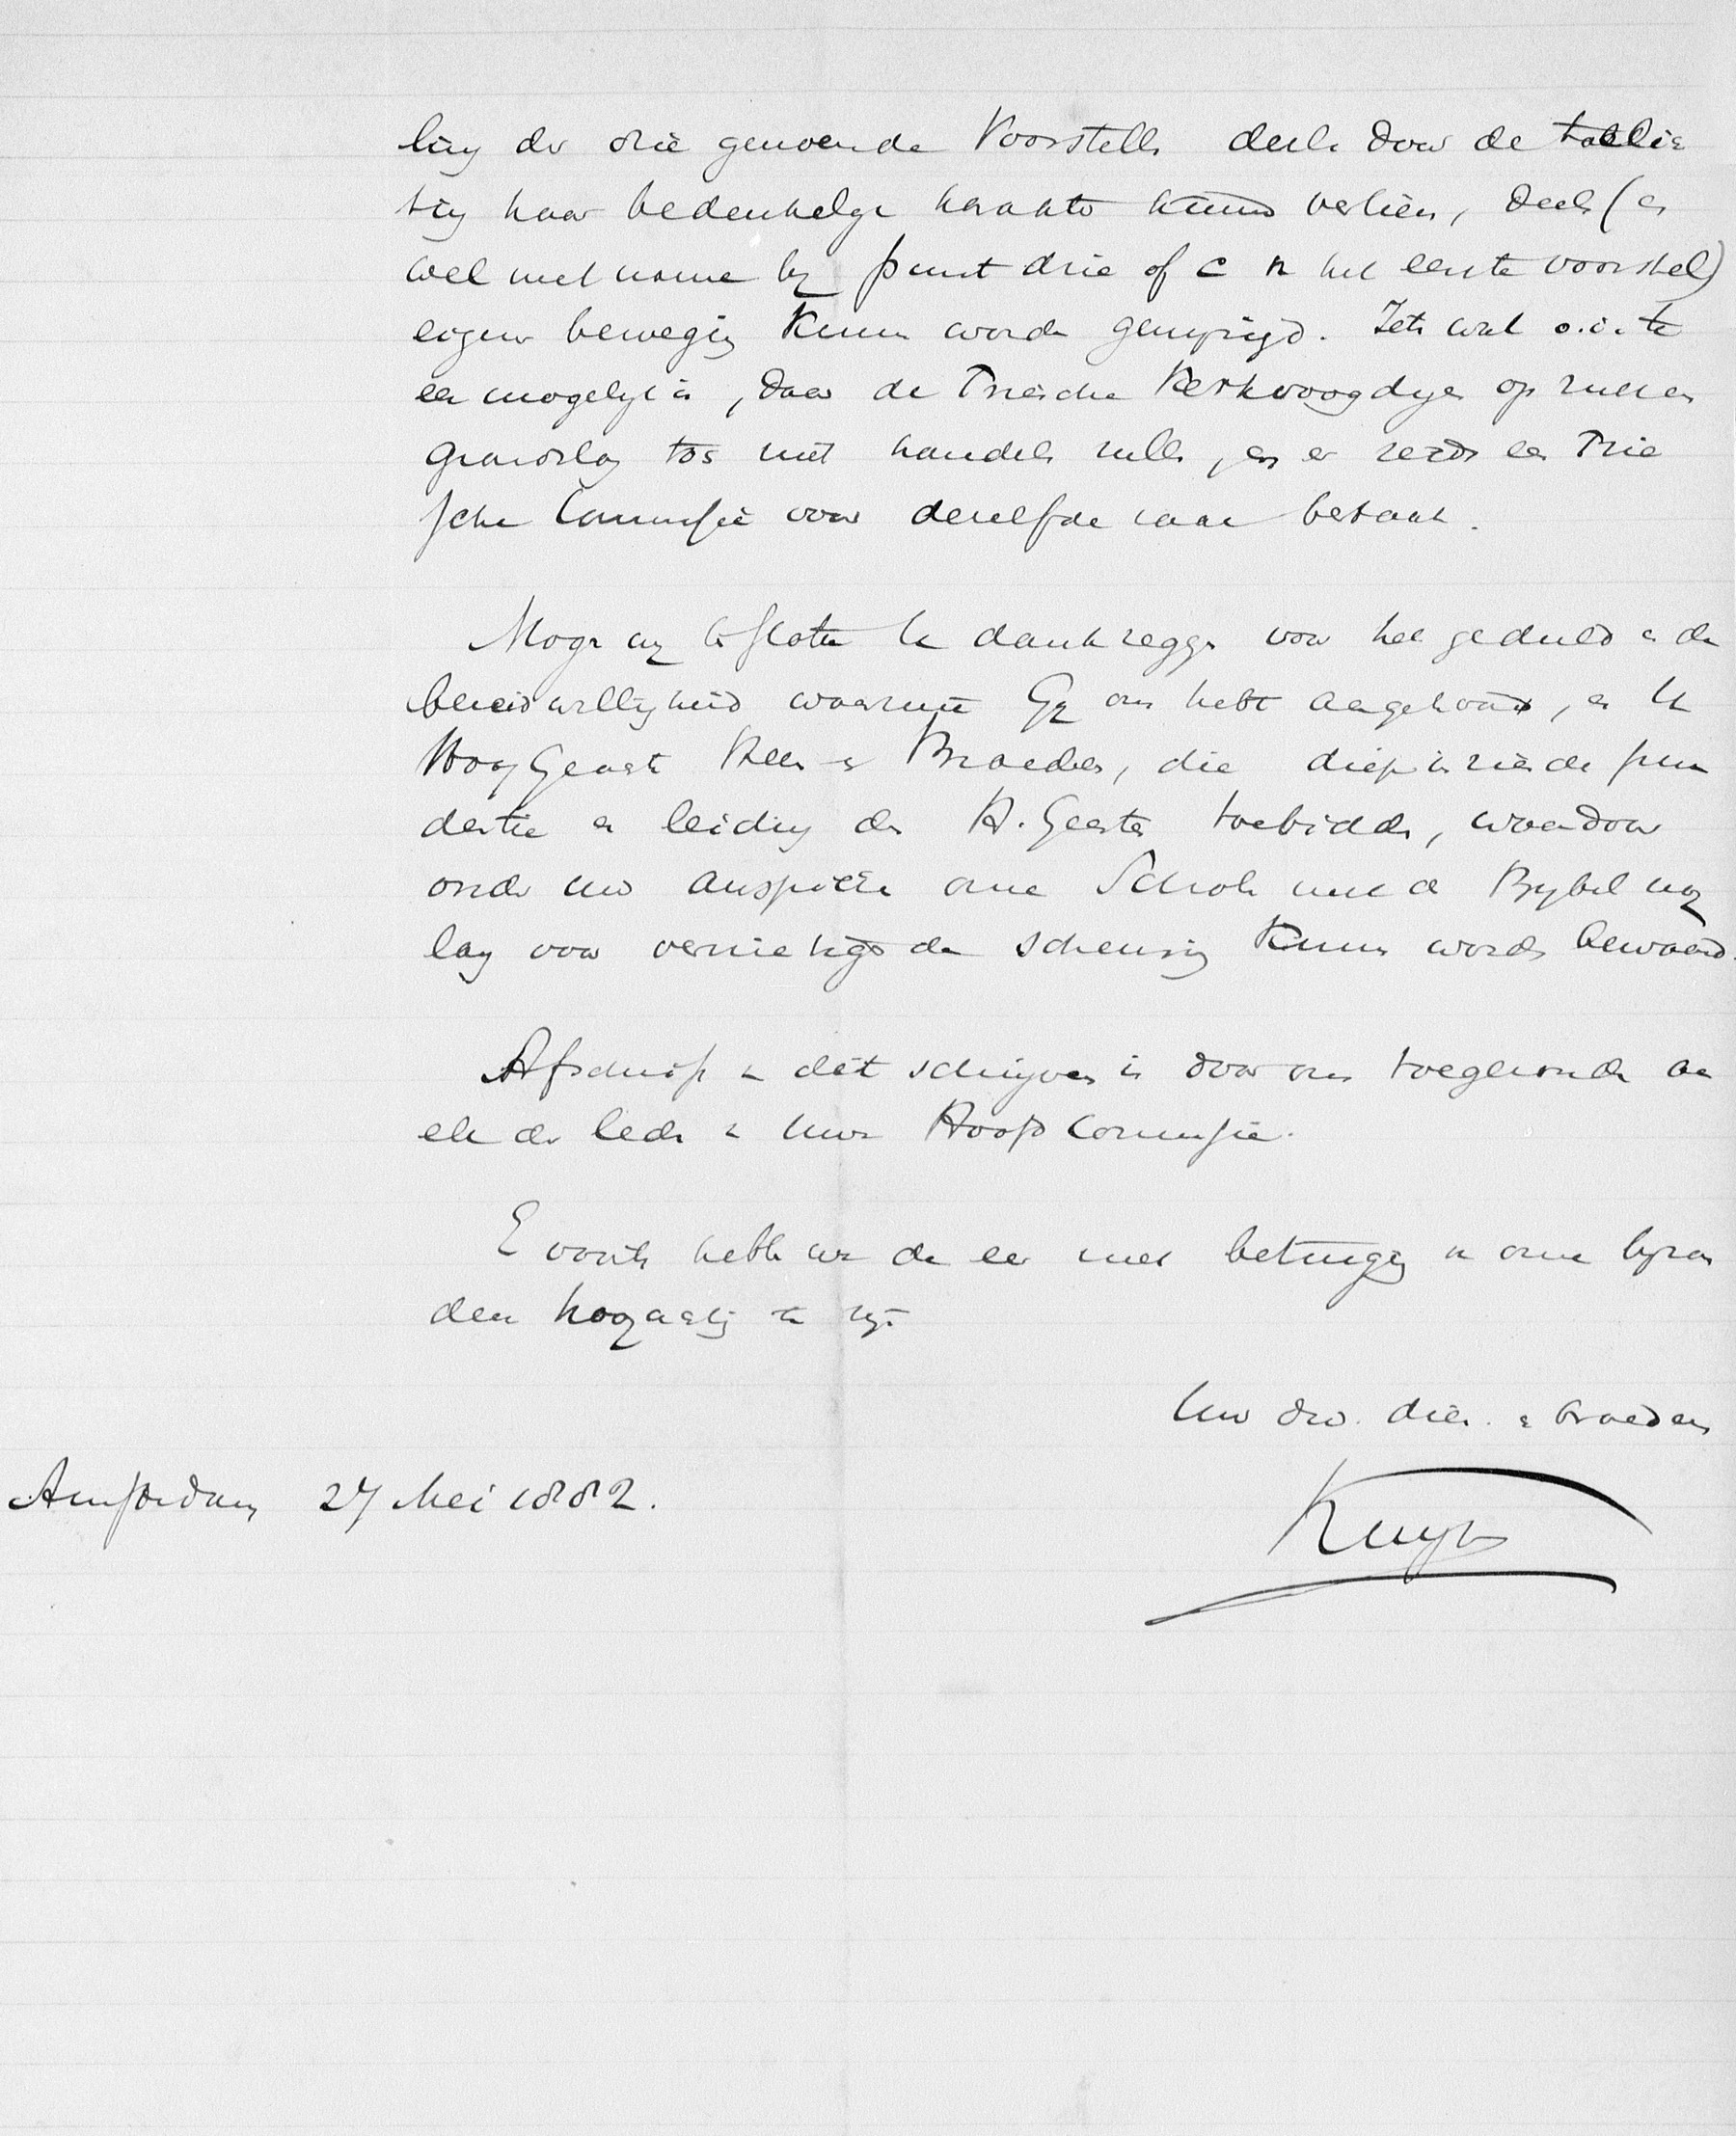 ling der drie genoemde Voorstellen deels door de
ting haar bedenkelyk karakter kunnen verliezen, deels (en
wel met name by punt drie of c van het eerste voorstel)
eigener beweging kunnen worden gewyzigd. Iets wat o.i. te
eer mogelyk is, daar de Friesche Kerkvoogdyen op zulk een
grondslag toch niet handelen zullen, en er reeds een Frie
sche Commissie voor dezelfde zaak bestaat.
Mogen wy ten slotte U dank zeggen voor het geduld en de
bereidwilligheid waarmee Gy ons hebt aangehoord, en U
HoogGeachte Heeren en Broeders, die diep
en leiding des H. Geestes toebidden, waardoor
onder uw auspiciën onze School met den Bybel nog
lang voor vernietigende scheuring kunne worden bewaard.
Afschrift van dit schryven is door ons toegezonden aan
elk der leden van Uwe Hoofdcommissie.
En voorts hebben we de eer met betuiging van onze byzon
dere hoogachting te zyn
Uw dw. dien. en broeders
Amsterdam 27 Mei 1882.
Kuyper